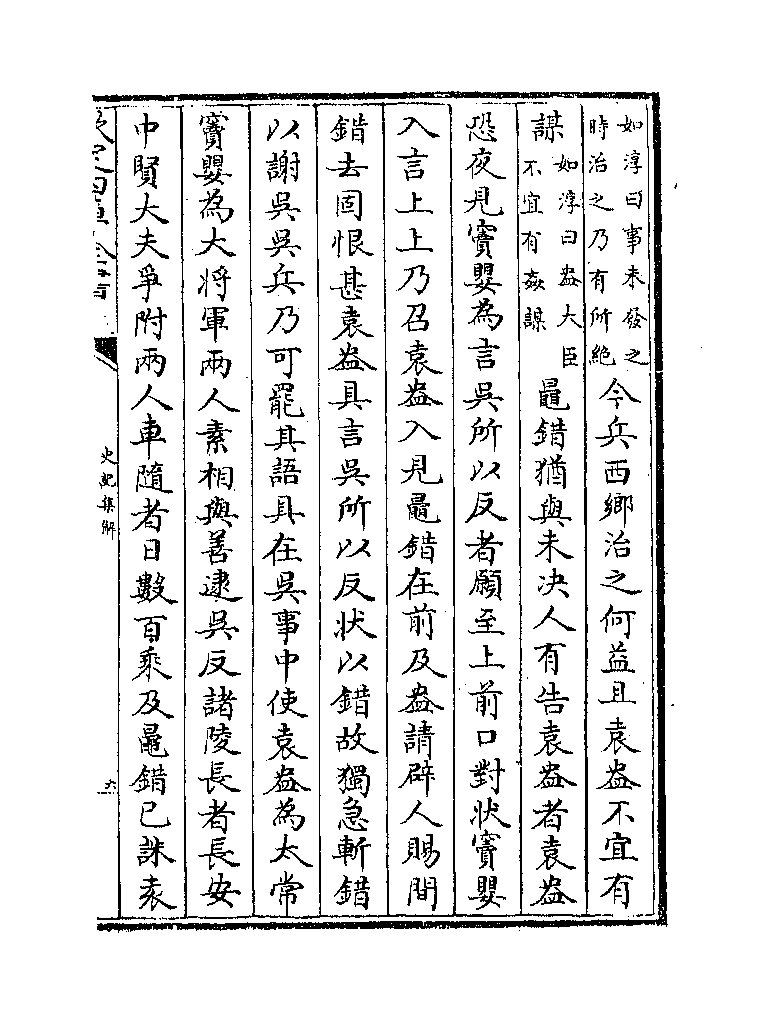 如淳曰事未發之
時治之乃有所絶
今兵西鄉治之何益且袁盎不宜有
謀
如淳曰盎大臣
不宜有姦謀
鼂錯猶與未决人有告袁盎者袁盎
恐夜見竇嬰為言吳所以反者願至上前口對狀竇嬰
入言上上乃召袁盎入見鼂錯在前及盎請辟人賜間
錯去固恨甚袁盎具言吳所以反狀以錯故獨急斬錯
以謝吳吳兵乃可罷其語具在吳事中使袁盎為太常
竇嬰為大將軍兩人素相與善逮吳反諸陵長者長安
中賢大夫爭附兩人車隨者日數百乘及鼂錯已誅袁
欽定四庫全書
史記集解
六